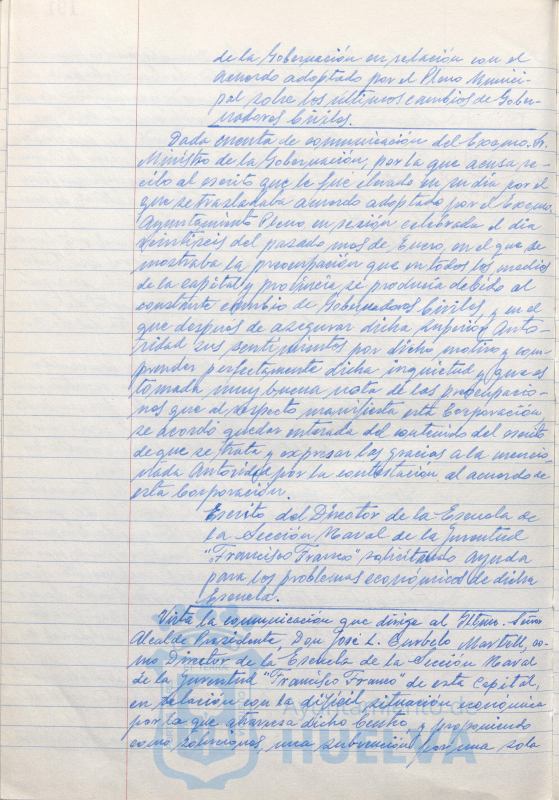 de la Gobernación en relación con el
acuerdo adoptado por el Pleno Munici-
pal sobre los últimos cambios de Gober-
nadores Civiles.
Dada cuenta de comunicación del Excmo. Sr.
Ministro de la Gobernación, por la que acusa re-
cibo al escrito que le fué elevado en su día por el
que se trasladaba acuerdo adoptado por el Excmo.
Ayuntamiento Pleno, en sesión celebrada el día
veintiseis del pasado mes de Enero, en el que se
mostraba la preocupación que en todos los medios
de la capital y provincia se producia debido al
constante cambio de Gobernadores Civiles, y en el
que después de asegurar dicha Superior Auto-
ridad sus sentimientos por dicho motivo y com-
prender perfectamente dicha inquietud y que es
tomada muy buena nota de las preocupacio-
nes que al respecto manifiesta esta Corporación
se acordó quedar enterada del contenido del escrito
de que se trata y expresar las gracias a la mencio-
nada Autoridad por la contestación al acuerdo de
esta Corporación.
Escrito del Director de la Escuela de
la Sección Naval de la Juventud
"Francisco Franco" solicitando ayuda
para los problemas económicos de dicha
Escuela.
Vista la comunicación que dirige al Iltmo. Señor
Alcalde Presidente, Don José L. Curbelo Martell, co-
mo Director de la Escuela de la Sección Naval
de la Juventud "Francisco Franco" de esta Capital,
en relación con la difícil situación económica
por la que atraviesa dicho Centro y proponiendo
como soluciones, una subvención por una sola
HUELVA